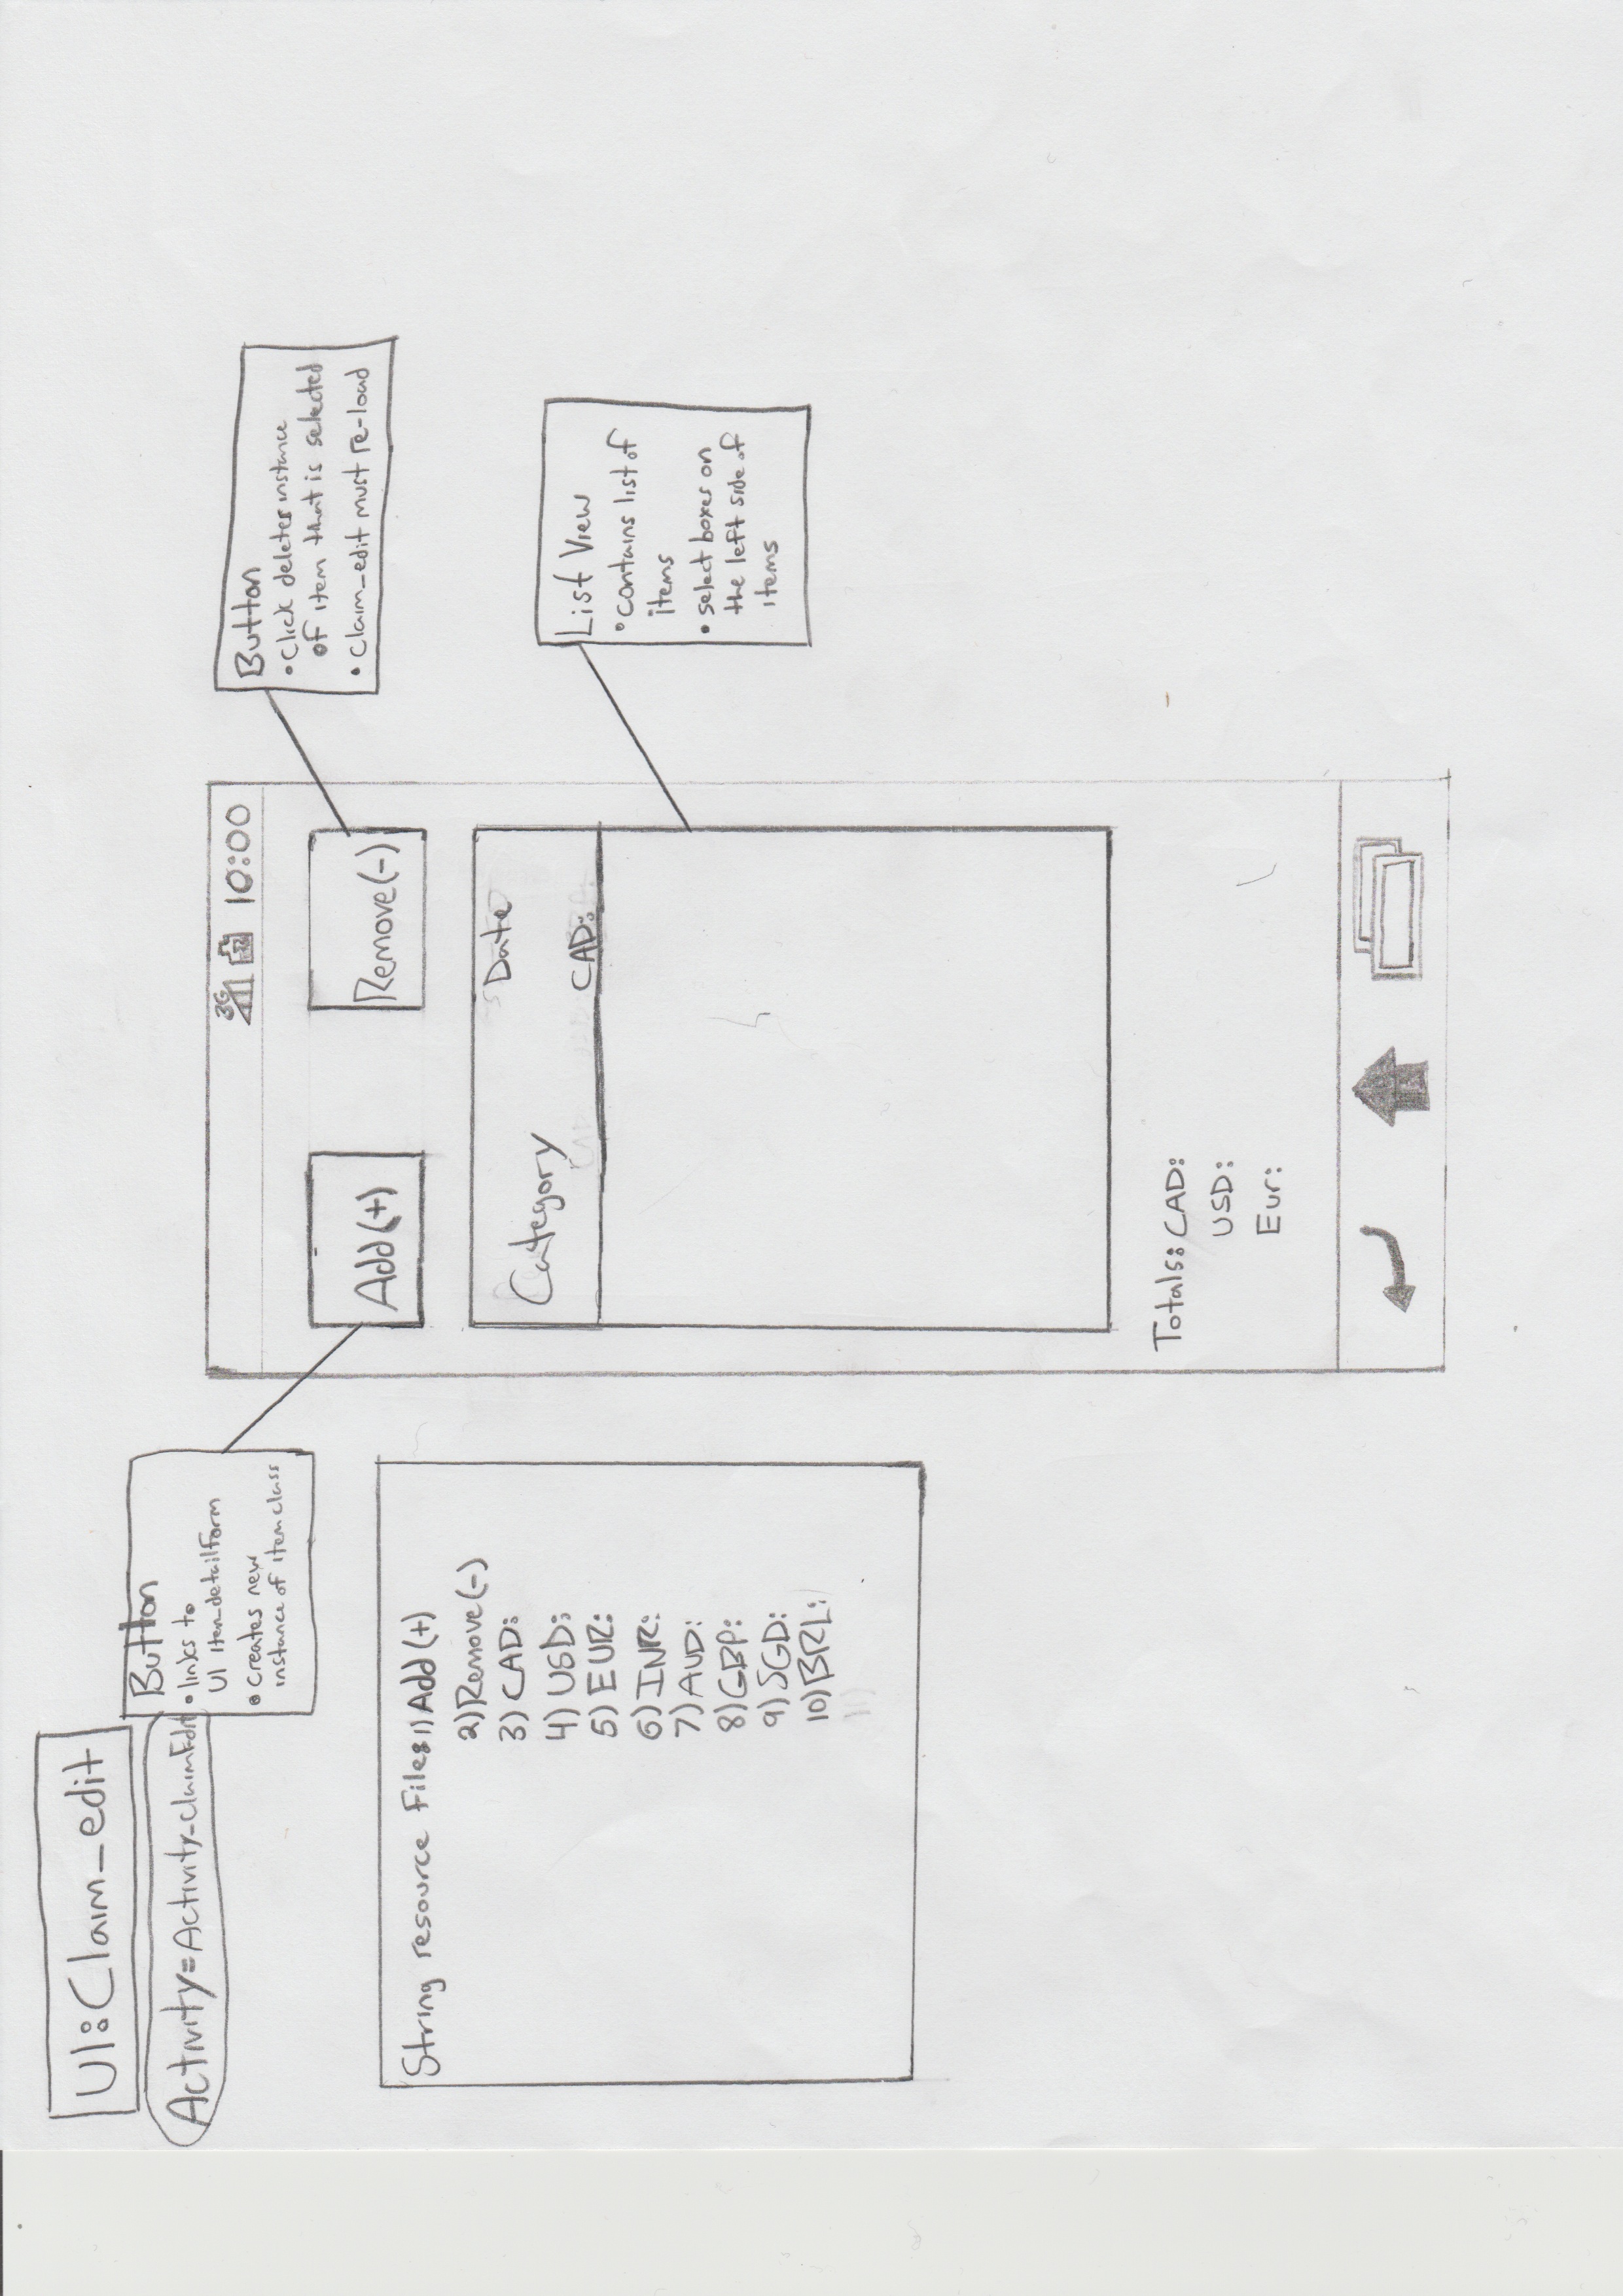 UI: Claim_edit
Activity=Activity_ClaimEdit
Button
• links to
UI item_detailForm
• creates new
instance of item class
String resource Files: 1) Add (+)
2) Remove (-)
3) CAD:
4) USD:
5) EUR:
6) INR:
7) AUD:
8) GBP:
9) SGD:
10) BRL:
11)
3G 10:00
Add (+)
Remove (-)
Category
Date
CAD:
Totals: CAD:
USD:
Eur:
Button
• Click deletes instance
of item that is selected
• claim_edit must re-load
List View
• contains list of
items
• select boxes on
the left side of
items